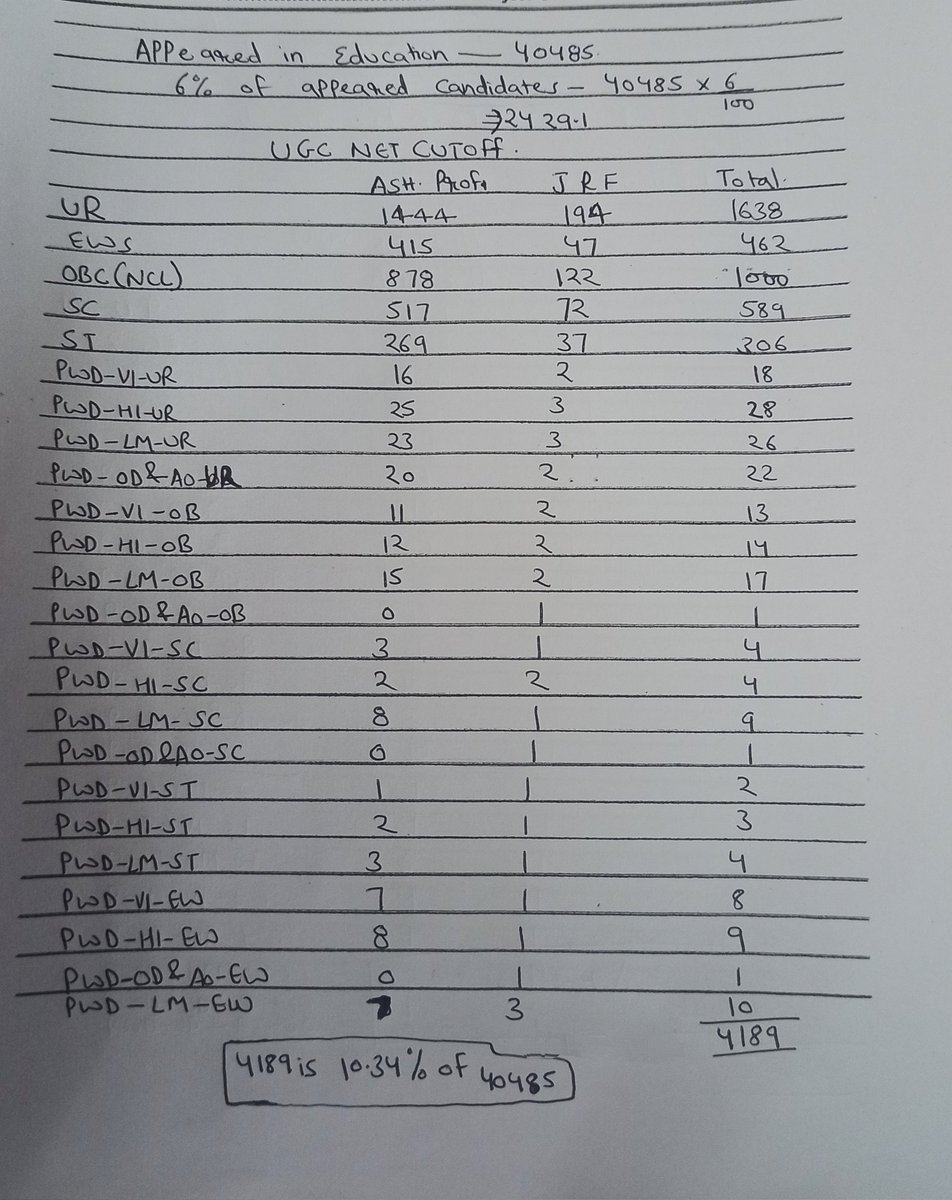 Appeared in Education — 40485.
6% of appeared Candidates – 40485 × 6/100
⇒2429.1
UGC NET CUTOFF.
ASH. Prof. JRF Total.
UR 1444 194 1638
EWS 415 47 462
OBC(NCL) 878 122 1000
SC 517 72 589
ST 269 37 306
PWD-VI-UR 16 2 18
PWD-HI-UR 25 3 28
PWD-LM-UR 23 3 26
PWD-OD&AO-UR 20 2 22
PWD-VI-OB 11 2 13
PWD-HI-OB 12 2 14
PWD-LM-OB 15 2 17
PWD-OD&AO-OB 0 1 1
PWD-VI-SC 3 1 4
PWD-HI-SC 2 2 4
PWD-LM-SC 8 1 9
PWD-OD&AO-SC 0 1 1
PWD-VI-ST 1 1 2
PWD-HI-ST 2 1 3
PWD-LM-ST 3 1 4
PWD-VI-EW 7 1 8
PWD-HI-EW 8 1 9
PWD-OD&AO-EW 0 1 1
PWD-LM-EW 7 3 10
4189
4189 is 10.34% of 40485